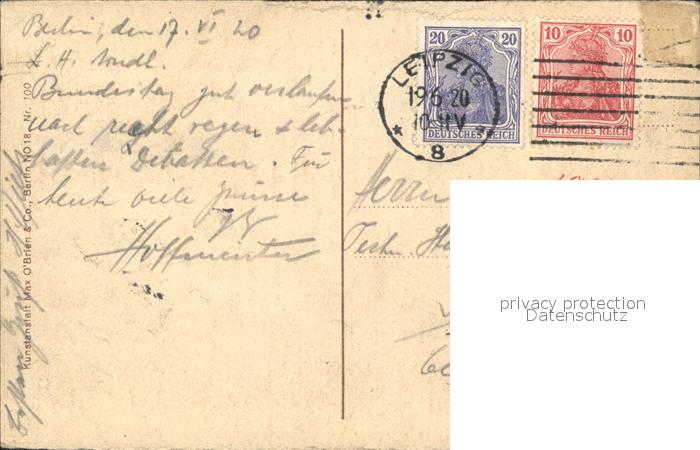 Berlin, den 17. VI 20
L. H. Wndl.
Bundestag gut verlaufen
nach recht regen & leb-
haften Debatten. Für
heute viele Grüsse
Hoffmeister
Kunstanstalt Max O'Brien & Co., Berlin NO 18. Nr. 100
20 20
DEUTSCHES REICH
10 10
DEUTSCHES REICH
LEIPZIG
19 6 20
10-11 V
* 8 *
Herrn
Techn
privacy protection
Datenschutz